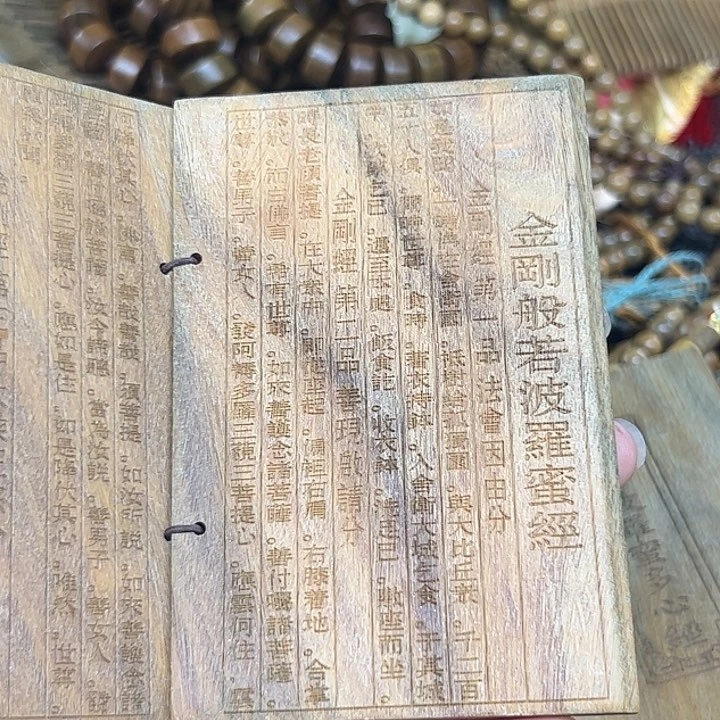 金剛般若波羅蜜經
金剛經 第一品 法會因由分
如是我聞。一時佛在舍衛國。祇樹給孤獨園。與大比丘眾。千二百
五十人俱。爾時世尊。食時。著衣持鉢。入舍衛大城乞食。于其城
中。次第乞已。還至本處。飯食訖。收衣鉢。洗足已。敷座而坐。
金剛經 第二品 善現啟請分
時長老須菩提。在大眾中。即從座起。偏袒右肩。右膝著地。合掌
恭敬。而白佛言。希有世尊。如來善護念諸菩薩。善付囑諸菩薩。
世尊。善男子。善女人。發阿耨多羅三藐三菩提心。應雲何住。應
降伏其心。佛言。善哉善哉。須菩提。如汝所說。如來善護念諸
菩薩。善付囑諸菩薩。汝今諦聽。當為汝說。善男子。善女人。發
阿耨多羅三藐三菩提心。應如是住。如是降伏其心。唯然。世尊。
蜜多心經